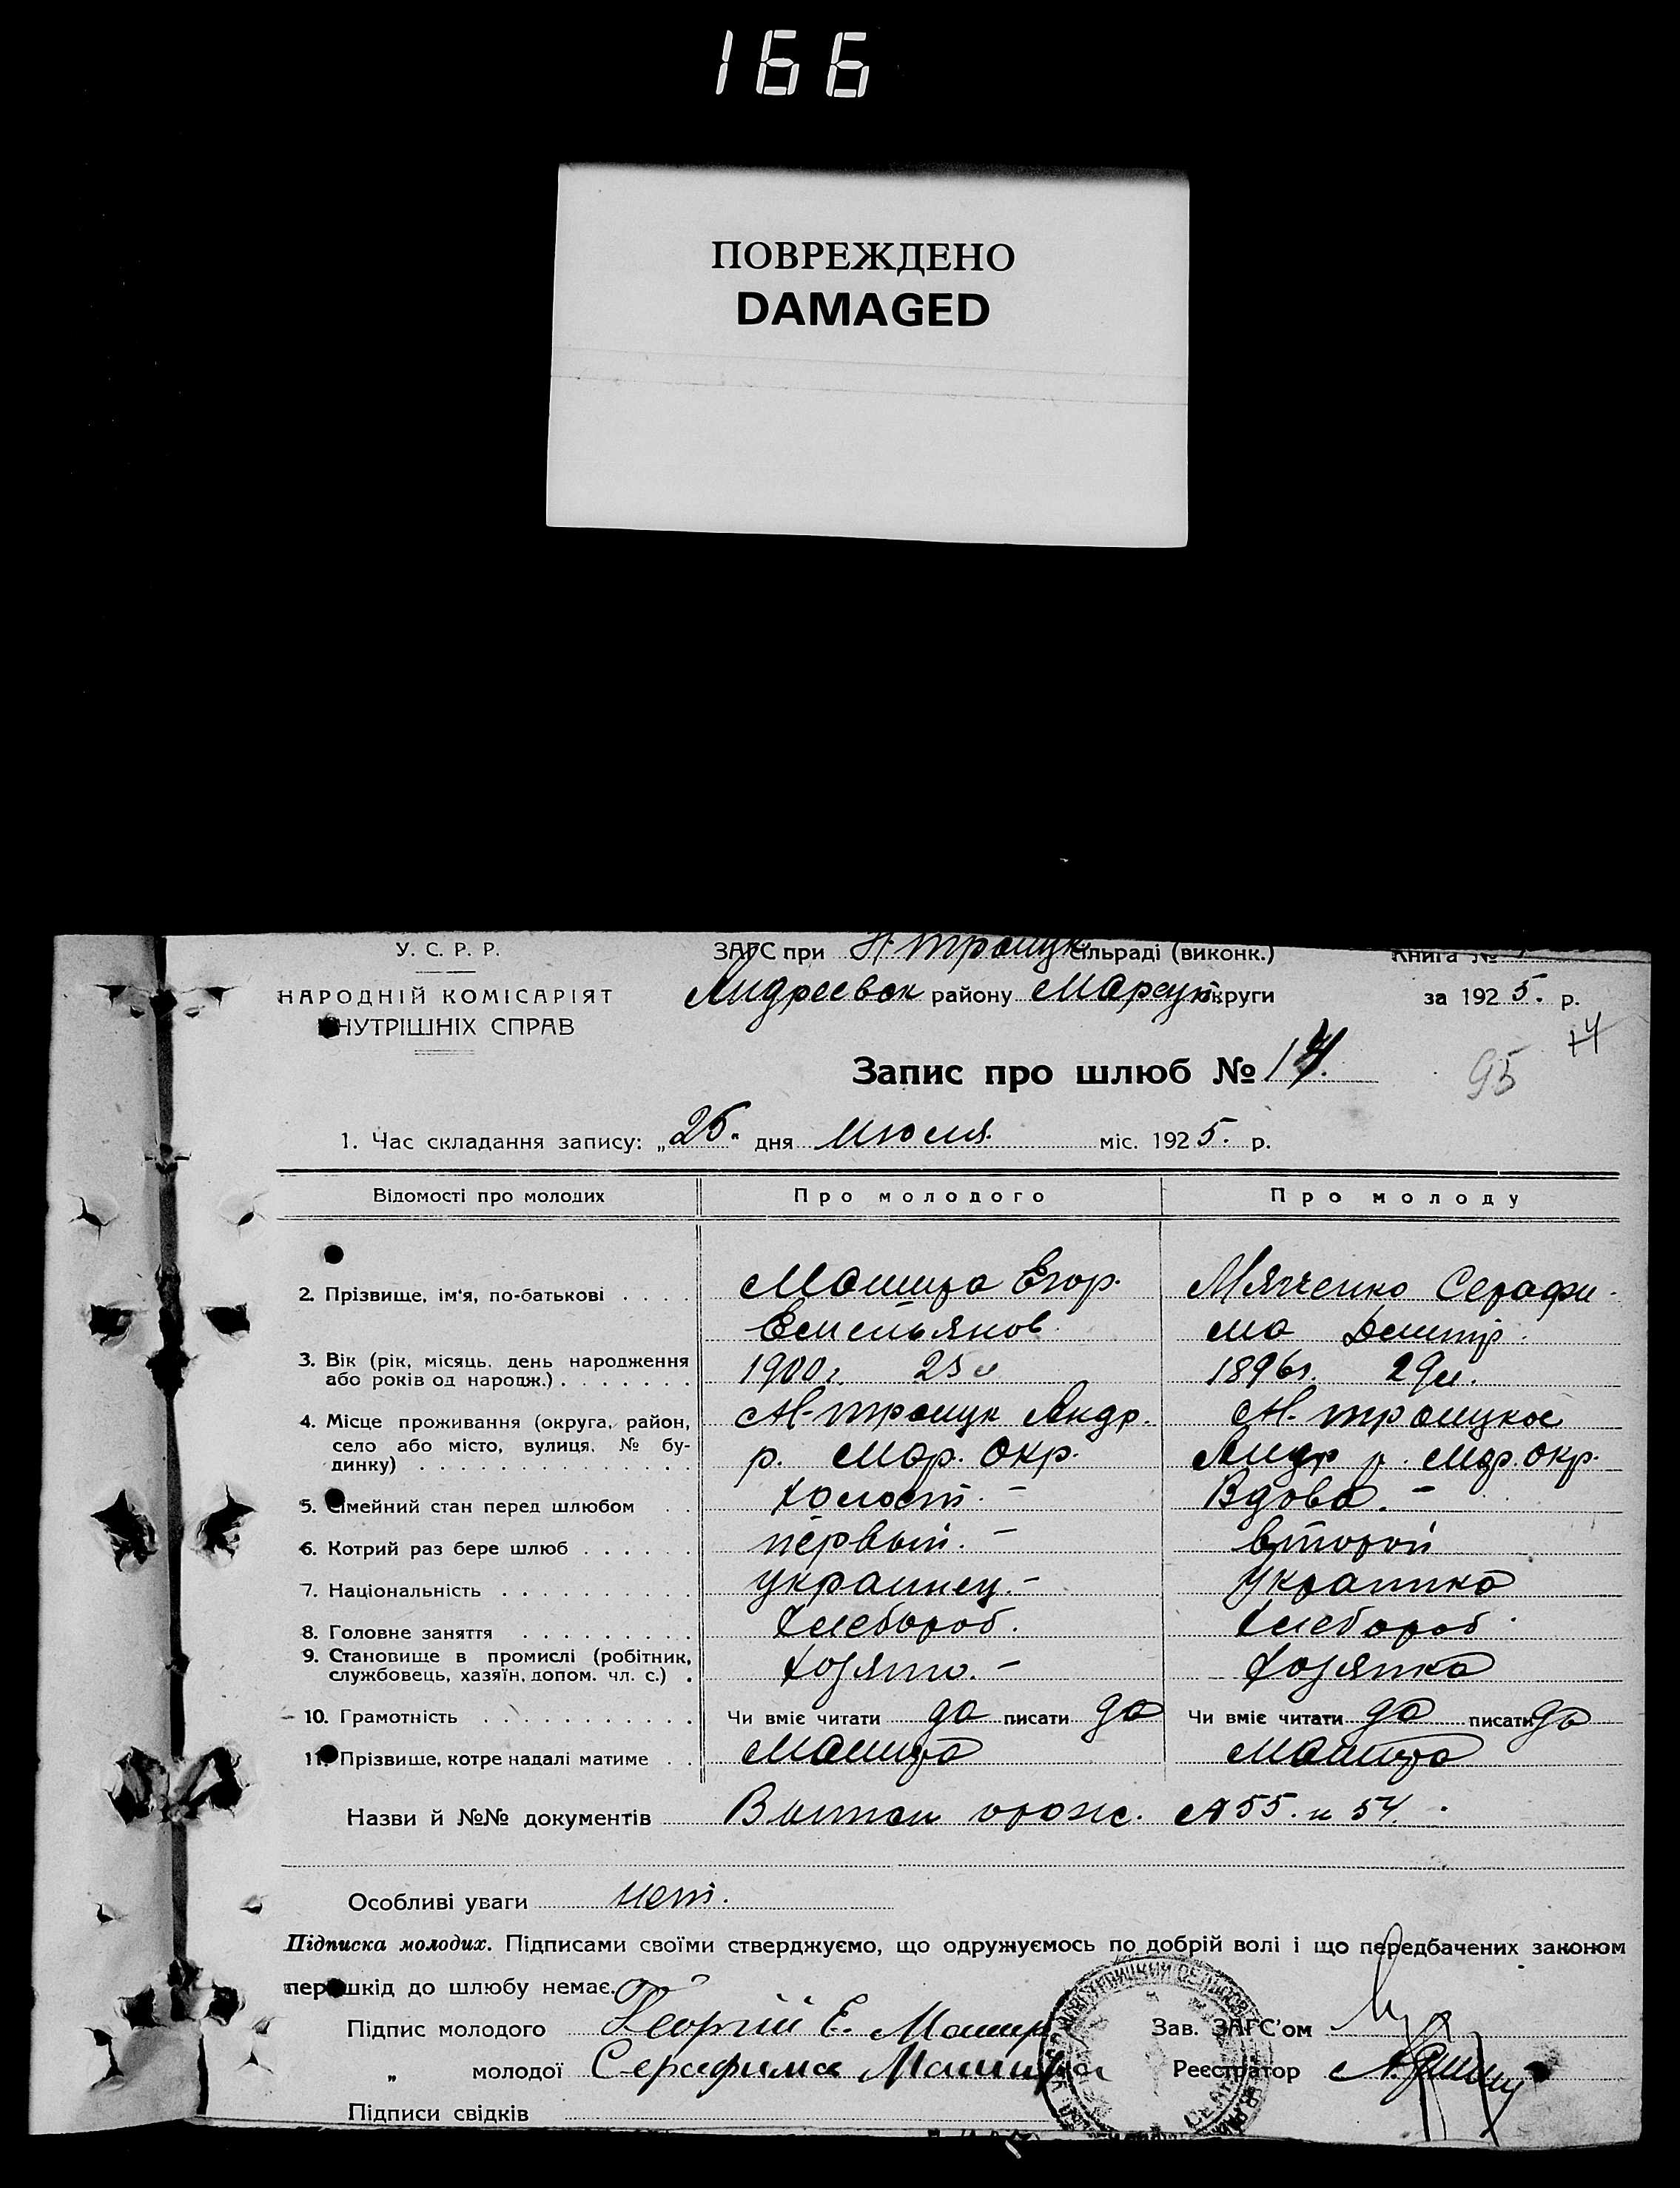 166
ПОВРЕЖДЕНО
DAMAGED
У. С. Р. Р.
НАРОДНІЙ КОМІСАРІЯТ
ВНУТРІШНІХ СПРАВ
ЗАГС при Н-троицк. сільраді (виконк.)
Андреевск району Мариуп. округи
Книга №
за 1925. р.
17
95
Запис про шлюб № 17.
1. Час складання запису: „25“ дня Июля міс. 1925. р.
Відомості про молодих Про молодого Про молоду
2. Прізвище, ім'я, по-батькові . . . . Машира Егор. Мягченко Серафи-
Емельянов. ма Дмитр.
3. Вік (рік, місяць, день народження
або років од народж.) . . . . . . . 1900 г. 25 л 1896 г. 29 л.
4. Місце проживання (округа, район, Н-троицк Андр. Н-троицкое
село або місто, вулиця, № бу-
динку) . . . . . . . . . . . . . . р. Мар. окр. Андр р. Мар. окр.
5. Сімейний стан перед шлюбом . . холост. – Вдова. –
6. Котрий раз бере шлюб . . . . . . первый. – второй
7. Національність . . . . . . . . . . украинец. – Украинка
8. Головне заняття . . . . . . . . . Хлебороб. Хлебороб.
9. Становище в промислі (робітник,
службовець, хазяїн, допом. чл. с.) . Хозяин. – Хозяйка
10. Грамотність . . . . . . . . . . . Чи вміє читати да писати да Чи вміє читати да писати да
11. Прізвище, котре надалі матиме . . Машира Машира
Назви й №№ документів Выписи о рожд. № 55. и 54.
Особливі уваги нет.
Підписка молодих. Підписами своїми стверджуємо, що одружуємось по добрій волі і що передбачених законом
перешкід до шлюбу немає.
Підпис молодого Георгій Е. Машир Зав. ЗАГС'ом
„ молодої Серафима Машира Реєстратор
Підписи свідків